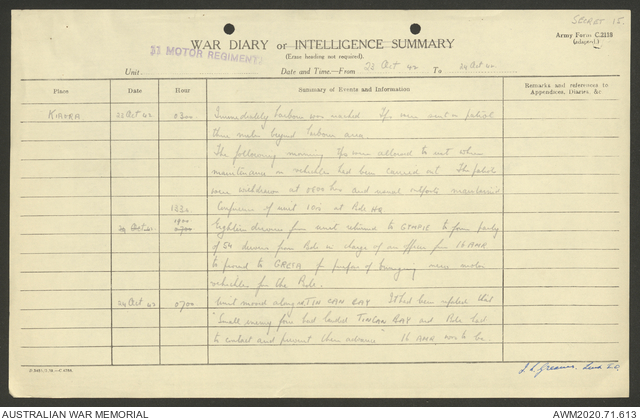 SECRET 15.
Army Form C.2118
(adapted.)
WAR DIARY or INTELLIGENCE SUMMARY
(Erase heading not required).
33 MOTOR REGIMENT
Unit
Date and Time—From 23 Oct 42 To 24 Oct 42
Place Date Hour Summary of Events and Information Remarks and references to Appendices, Diarists, &c.
23 Oct 42 0300 Immediately harbour was reached were sent on patrol
three miles beyond harbour area.
The following morning were allowed to rest when
maintenance on vehicles had been carried out. The patrols
were withdrawn at 0800 hrs and usual outposts maintained
1230 Conference of unit at Bde HQ
1900 Eighteen drivers from unit returned to GYMPIE to form party
of 54 drivers from Bde in charge of one officer from 16 AMR
to proceed to GRETA for purpose of bringing more motor
vehicles for the Bde.
24 Oct 42 0700 Unit moved along to TIN CAN BAY. It had been reported that
"Small enemy force had landed TINCAN BAY and Bde had
to contact and prevent their advance" 16 AMR were to be
AUSTRALIAN WAR MEMORIAL
AWM2020.71.613